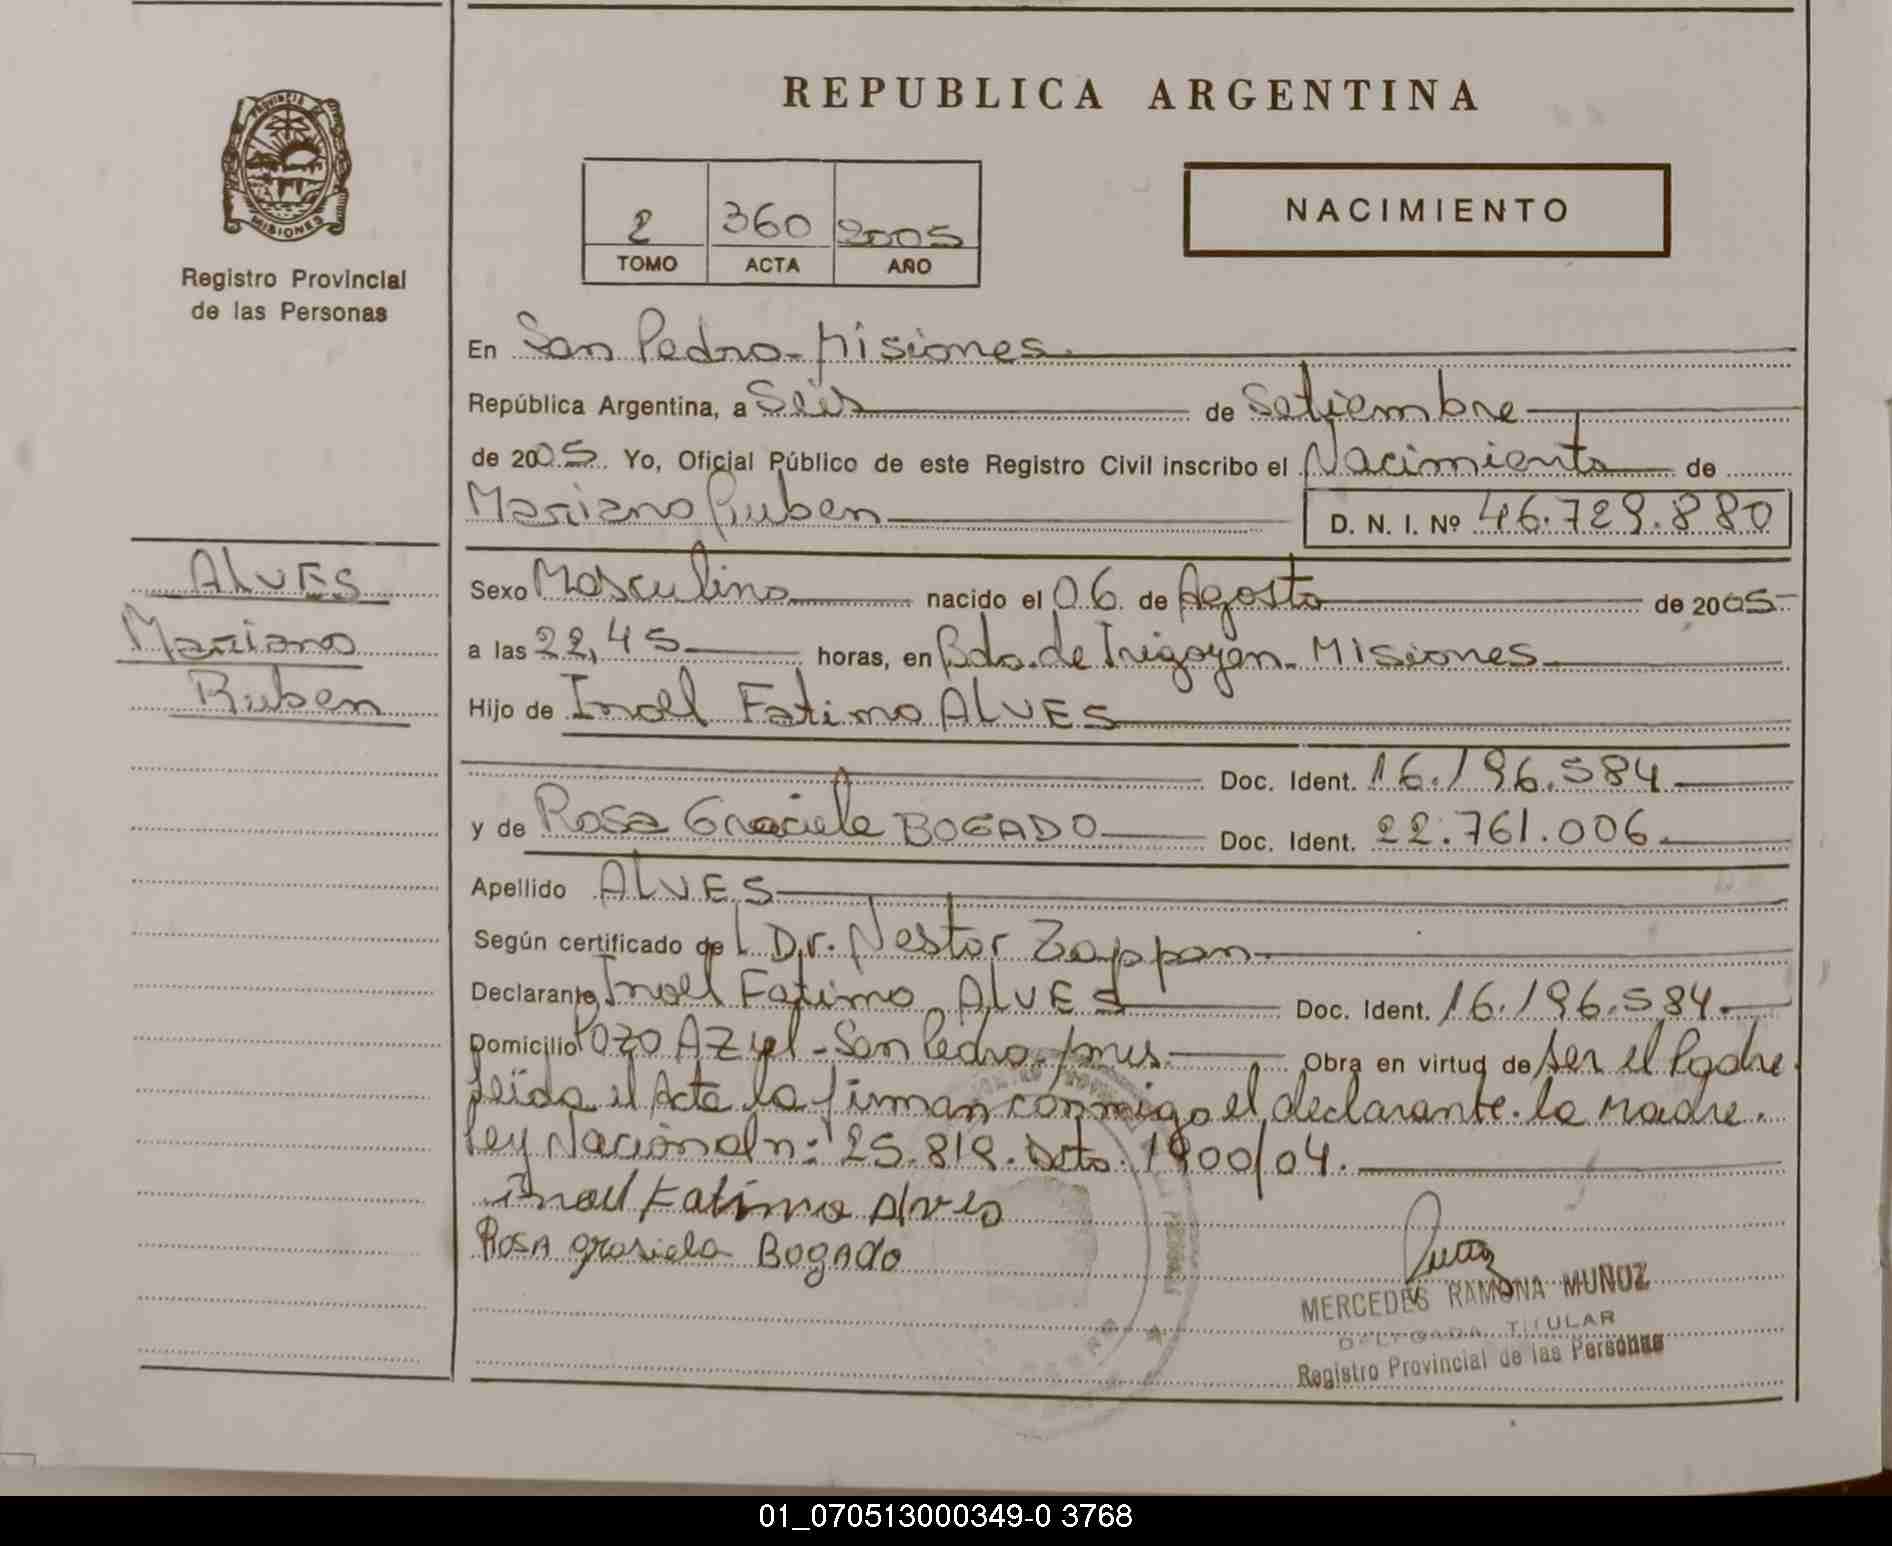 REPUBLICA ARGENTINA
PROVINCIA DE
MISIONES
Registro Provincial
de las Personas
2 360 2005
TOMO ACTA AÑO
NACIMIENTO
En San Pedro - Misiones.
República Argentina, a Seis de Setiembre
de 2005. Yo, Oficial Público de este Registro Civil inscribo el Nacimiento de
Mariano Ruben D. N. I. Nº 46.729.880
ALVES
Mariano
Ruben
Sexo Masculino nacido el 06 de Agosto de 2005
a las 22,45 horas, en Bdo. de Irigoyen - Misiones
Hijo de Inoel Fatimo ALVES
Doc. Ident. 16.196.584
y de Rosa Graciela BOGADO Doc. Ident. 22.761.006
Apellido ALVES
Según certificado del Dr. Nestor Zappan
Declarante Inoel Fatimo ALVES Doc. Ident. 16.196.584
Domicilio Pozo AZul - San Pedro - mis. Obra en virtud de ser el Padre.
Leida el Acta la firman conmigo el declarante. la madre.
Ley Nacional n: 25.819. Dcto. 1900/04.
Inoel Fatimo Alves
ROSA grasiela BOgADo
MERCEDES RAMONA MUÑOZ
DELEGADA TITULAR
Registro Provincial de las Personas
01_070513000349-0 3768